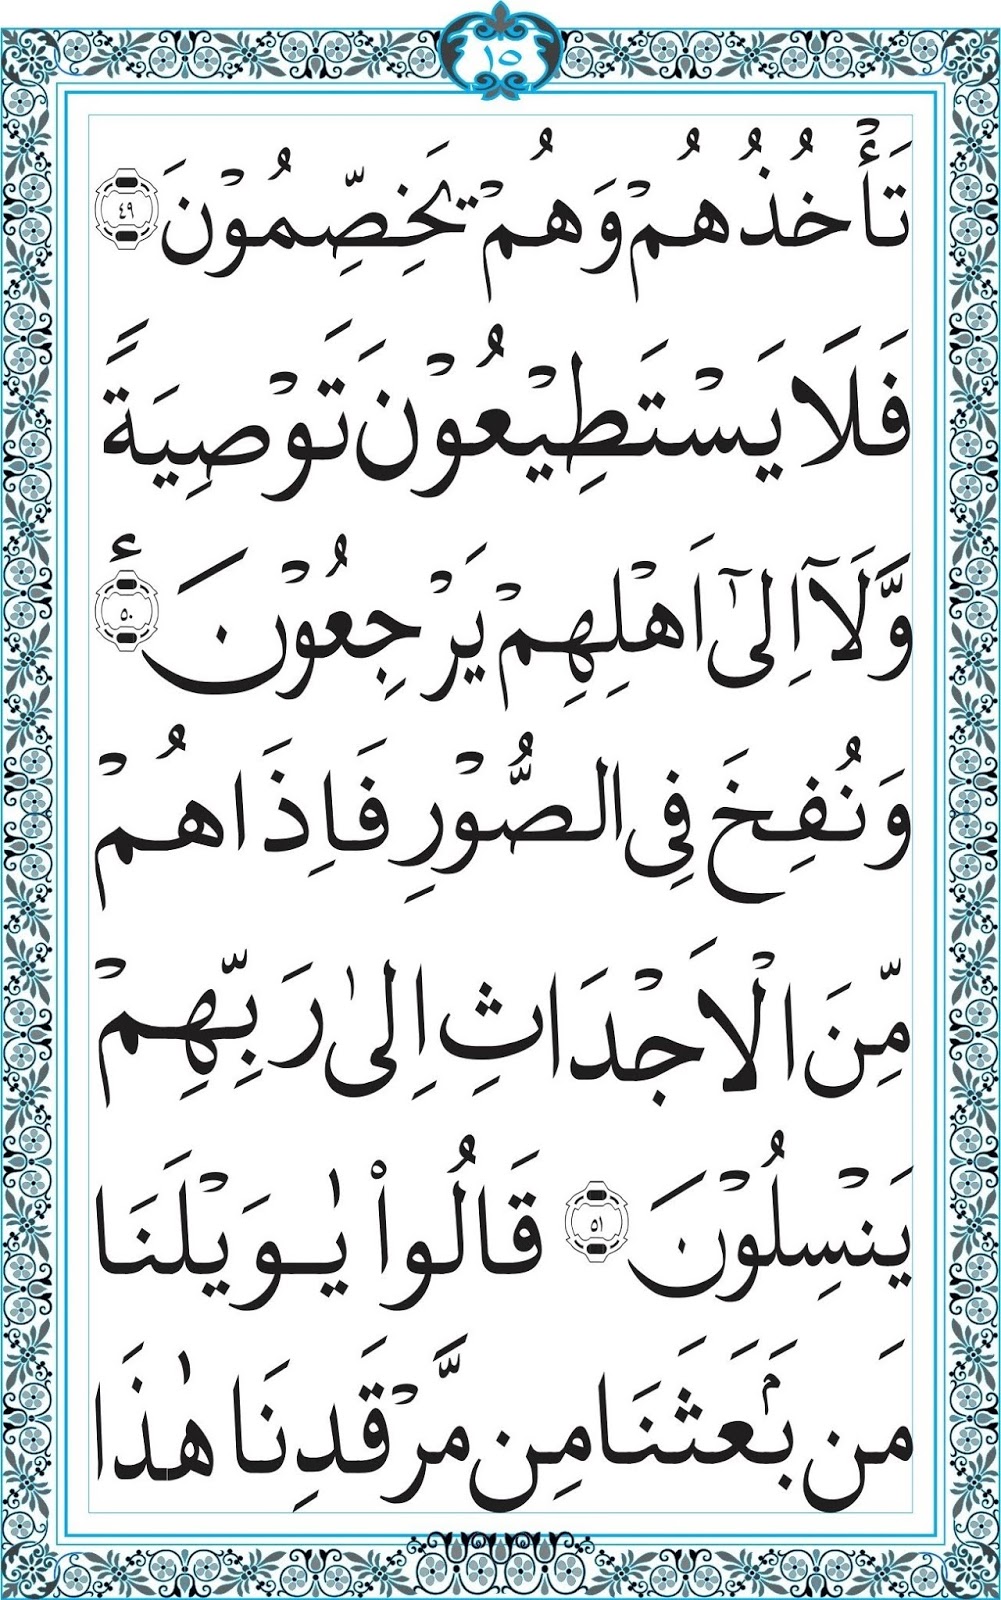 ١٥
تَأْخُذُهُمْ وَهُمْ يَخِصِّمُوْنَ ٤٩
فَلَا يَسْتَطِيْعُوْنَ تَوْصِيَةً
وَّلَآ اِلٰٓى اَهْلِهِمْ يَرْجِعُوْنَ ٥٠ ۧ
وَنُفِخَ فِى الصُّوْرِ فَاِذَا هُمْ
مِّنَ الْاَجْدَاثِ اِلٰى رَبِّهِمْ
يَنْسِلُوْنَ ٥١ قَالُوْا يٰوَيْلَنَا
مَنۢ بَعَثَنَا مِنْ مَّرْقَدِنَا هٰذَا